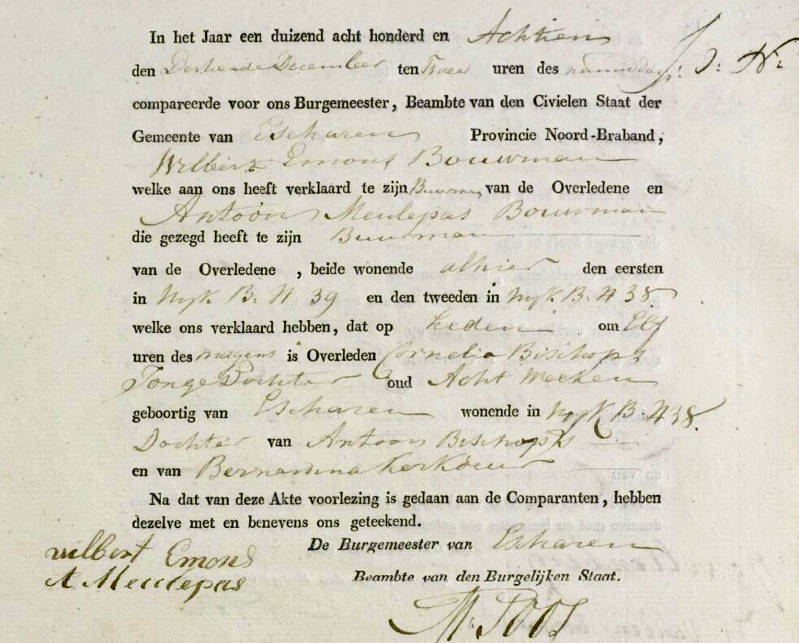 In het Jaar een duizend acht honderd en Achtien
den Dertiende December ten Twee uren des namiddags
compareerde voor ons Burgemeester, Beambte van den Civielen Staat der
Gemeente van Escharen Provincie Noord-Braband,
Wilbert Emons Bouwman
welke aan ons heeft verklaard te zijn Buurman van de Overledene en
Antoon Meulepas Bouwman
die gezegd heeft te zijn Buurman
van de Overledene , beide wonende alhier den eersten
in Wyk B. N 39 en den tweeden in Wyk B. N 38
welke ons verklaard hebben, dat op heden om Elf
uren des morgens is Overleden Cornelia Bischops
Jonge Dochter oud Acht Weeken
geboortig van Escharen wonende in Wyk B. N 38.
Dochter van Antoon Bischops
en van Bernardina Kerkdeur
Na dat van deze Akte voorlezing is gedaan aan de Comparanten, hebben
dezelve met en benevens ons geteekend.
De Burgemeester van Escharen
wilbert Emons
A Meulepas
Beambte van den Burgelijken Staat.